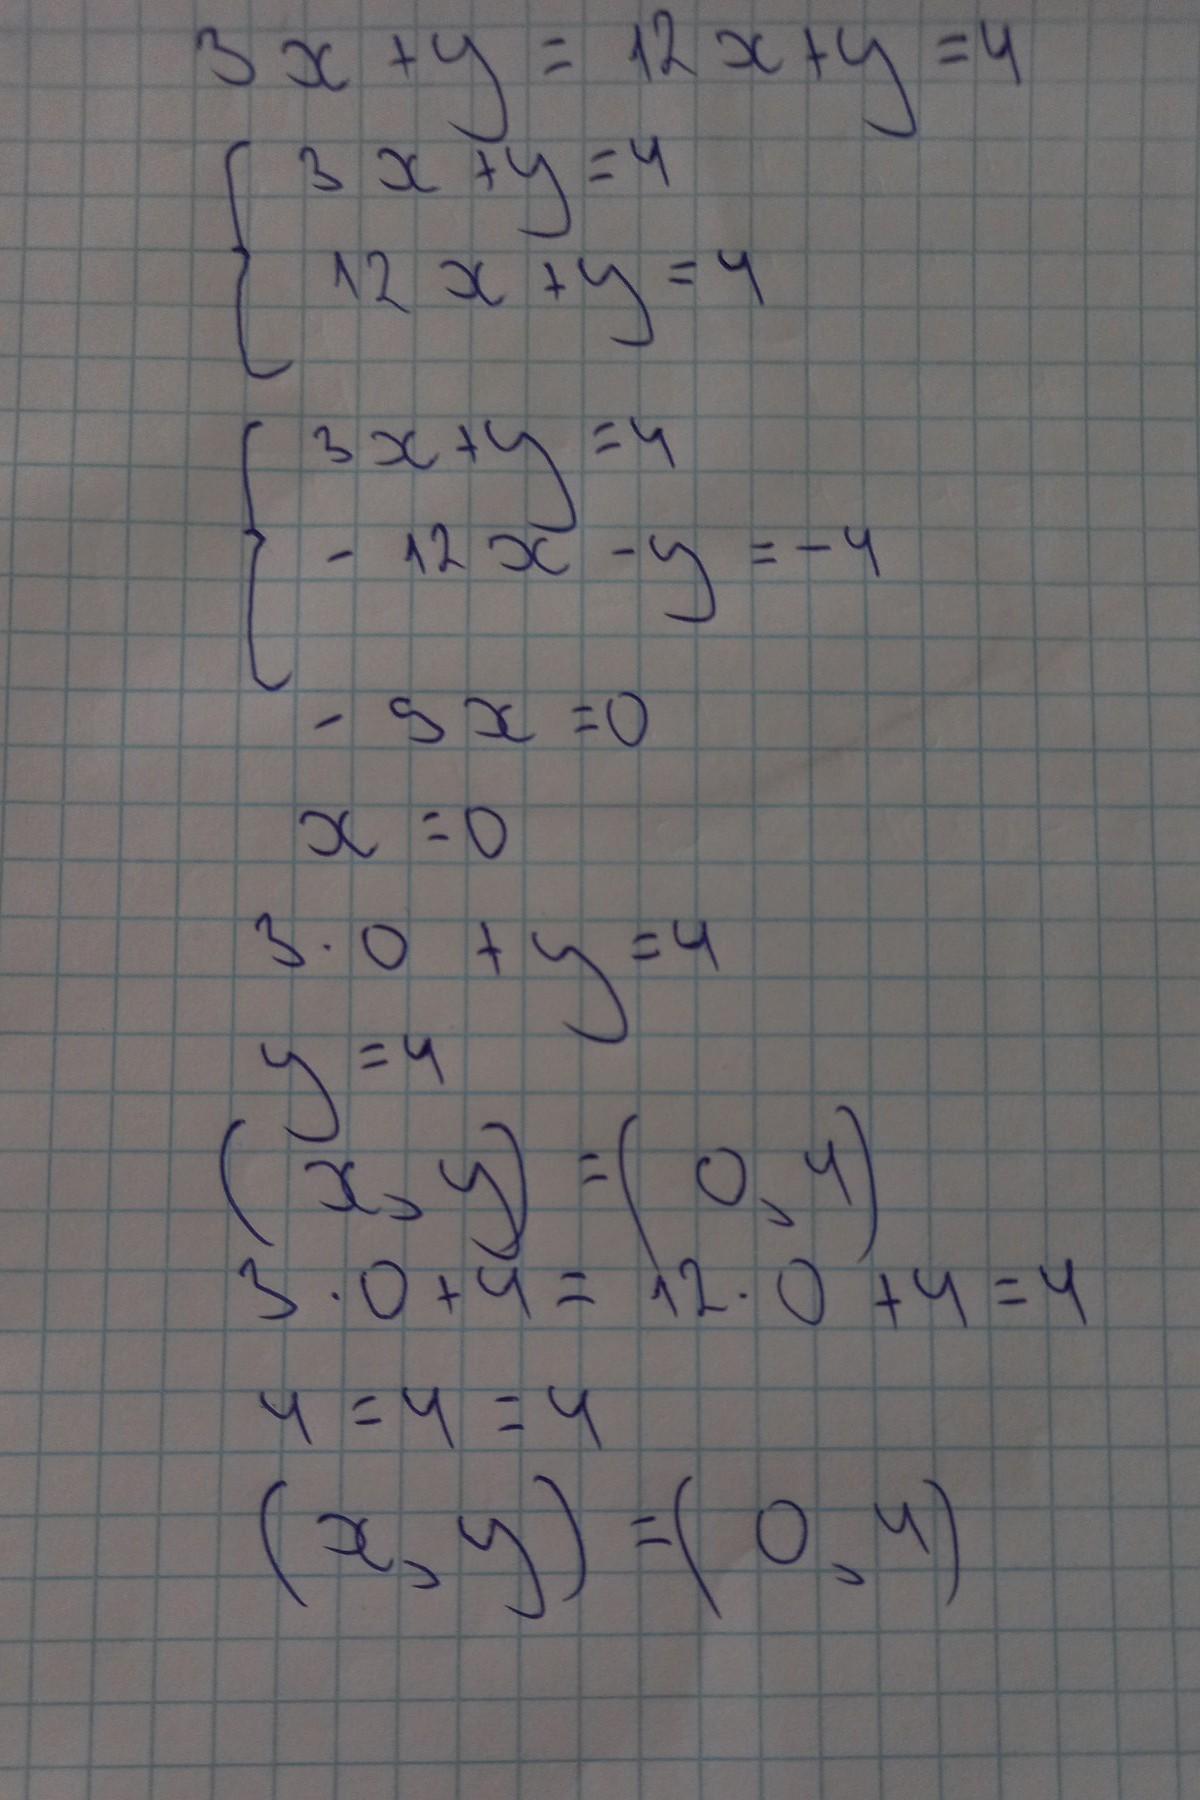 3x+y=12x+y=4
3x+y=4
12x+y=4
3x+y=4
-12x-y=-4
-9x=0
x=0
3·0+y=4
y=4
(x,y)=(0,4)
3·0+4=12·0+4=4
4=4=4
(x,y)=(0,4)